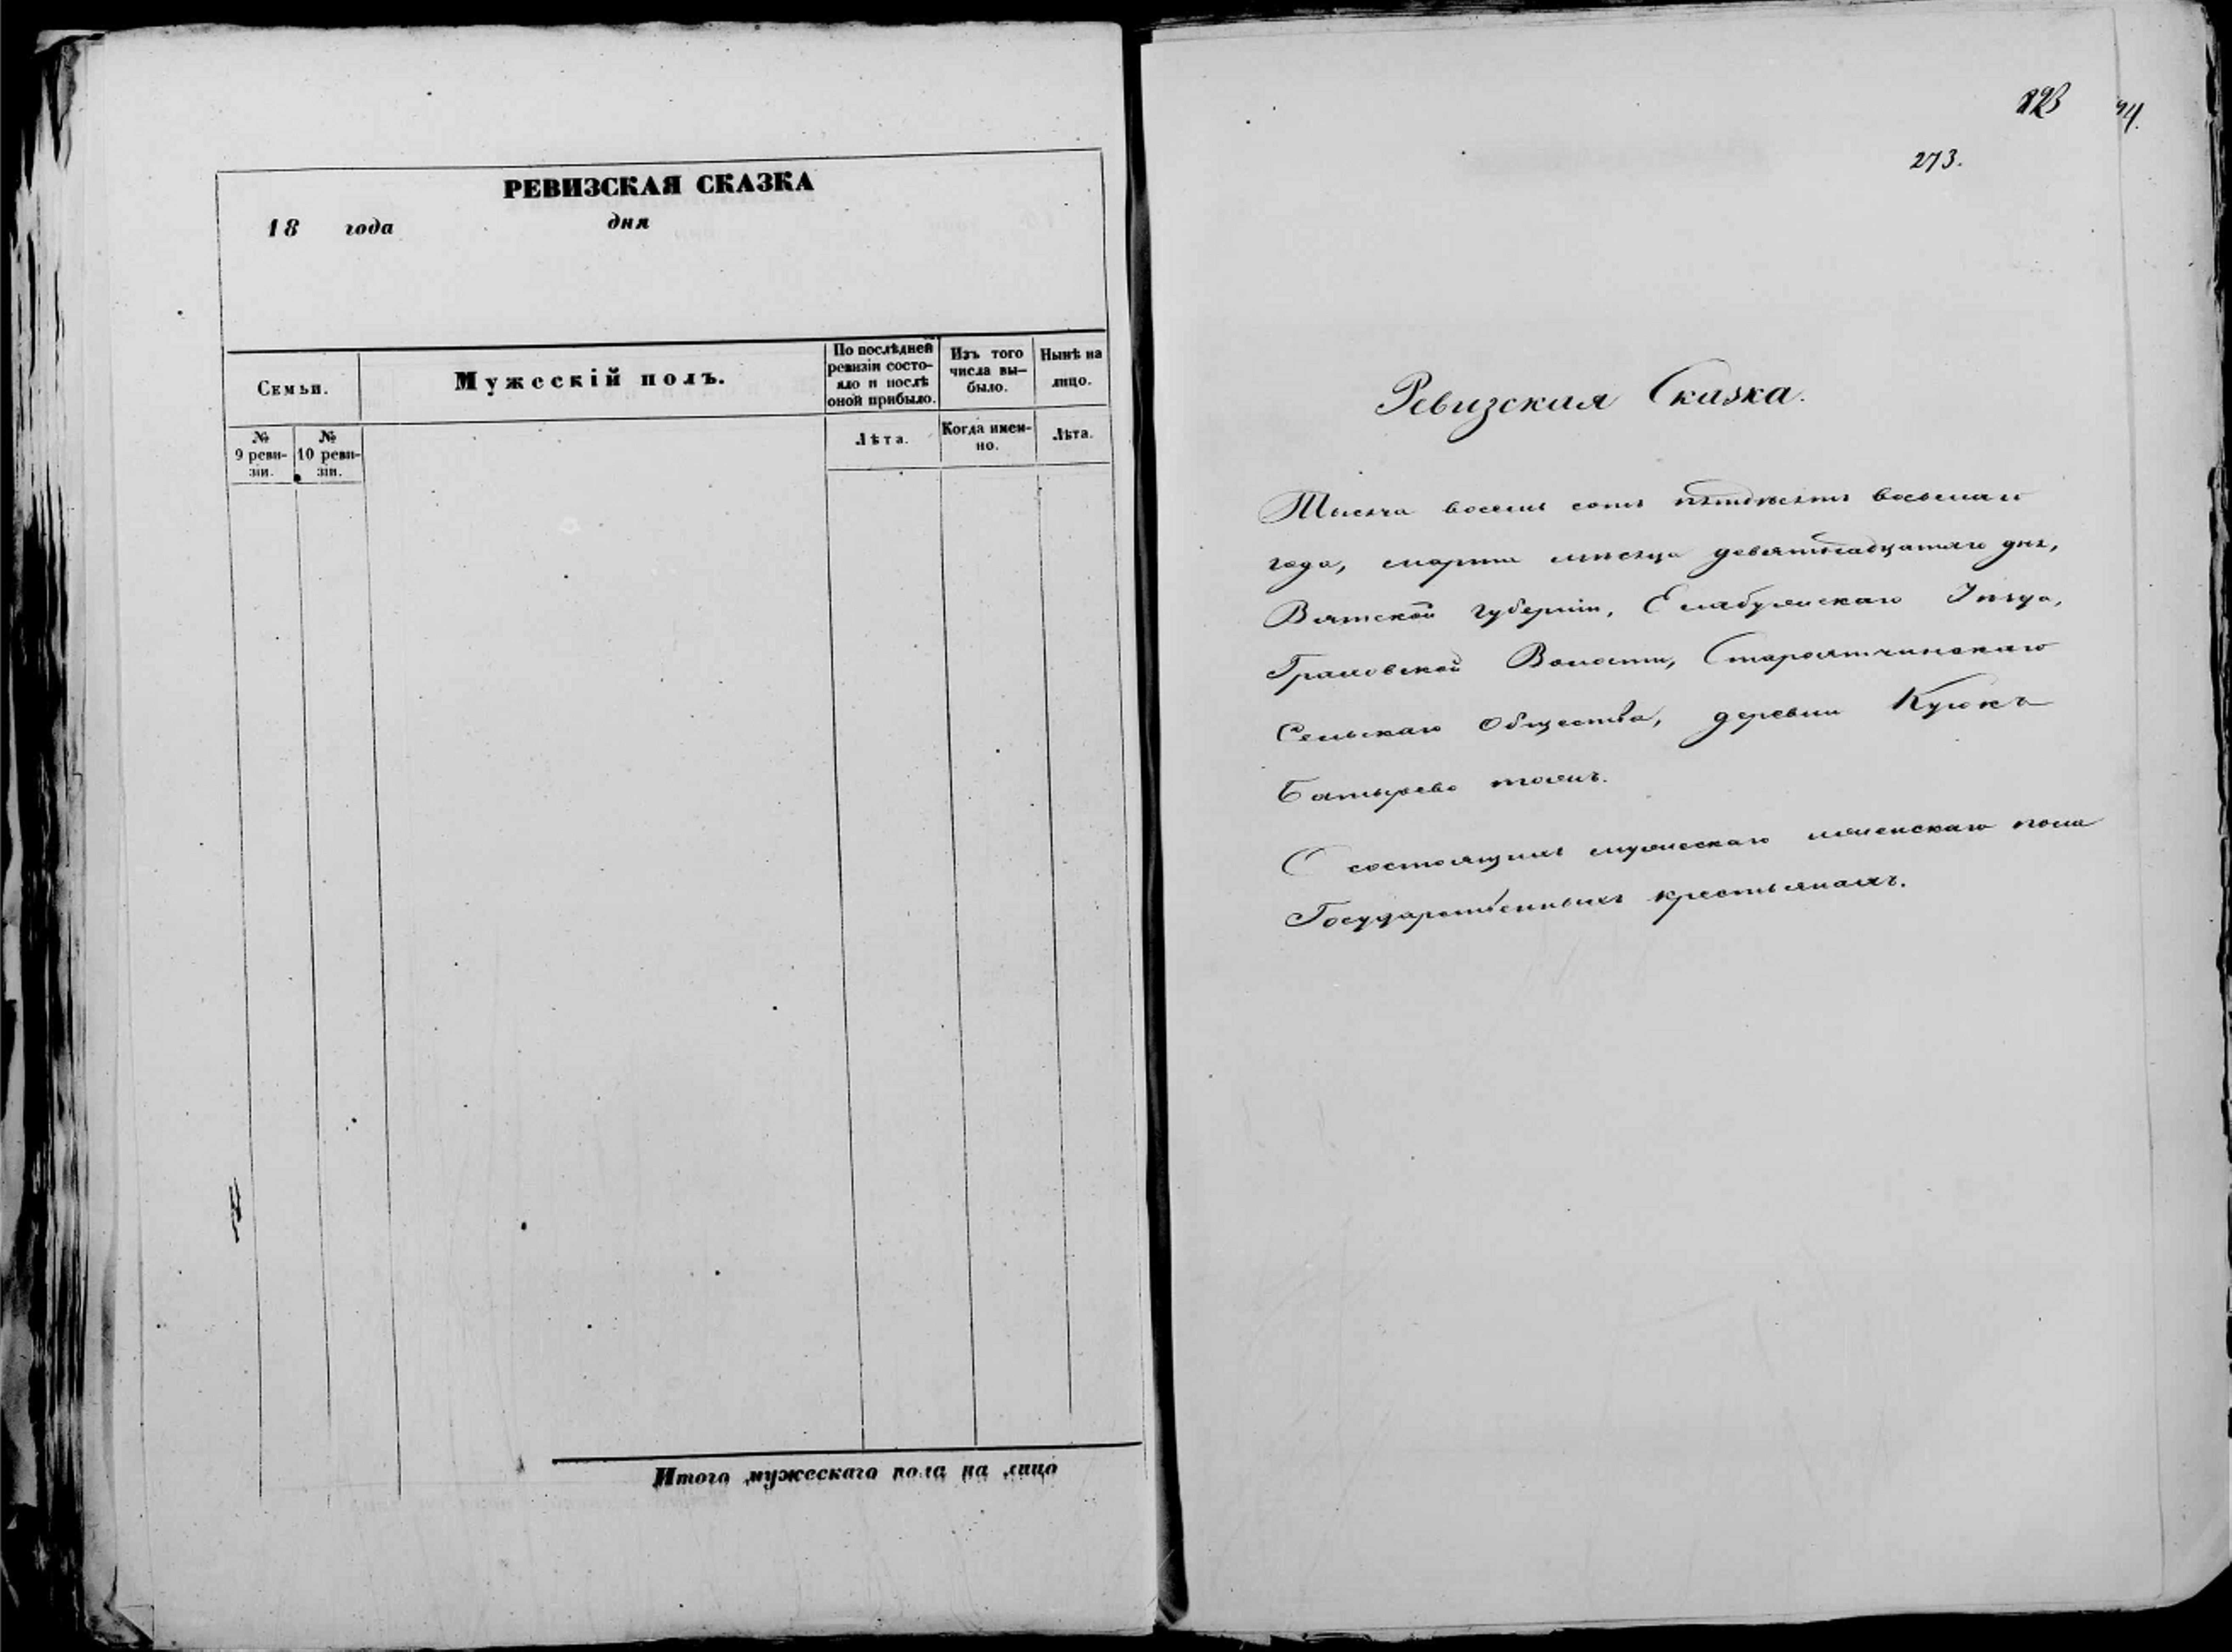 РЕВИЗСКАЯ СКАЗКА
18 года дня
Семьи.
Мужескій полъ.
По послѣдней ревизіи состояло и послѣ оной прибыло.
Изъ того числа выбыло.
Нынѣ на лицо.
№ 9 ревизіи.
№ 10 ревизіи.
Лѣта.
Когда именно.
Лѣта.
Итого мужескаго пола на лицо
273.
Ревизская Сказка.
Тысяча восемь сотъ пятдесятъ восьмаго
года, марта мѣсяца девятнадцатаго дня,
Вятской губерніи, Елабужскаго Уѣзда,
Граховской Волости, Староятчинскаго
Сельскаго Общества, деревни
О состоящихъ мужескаго женскаго пола
Государственныхъ крестьянахъ.